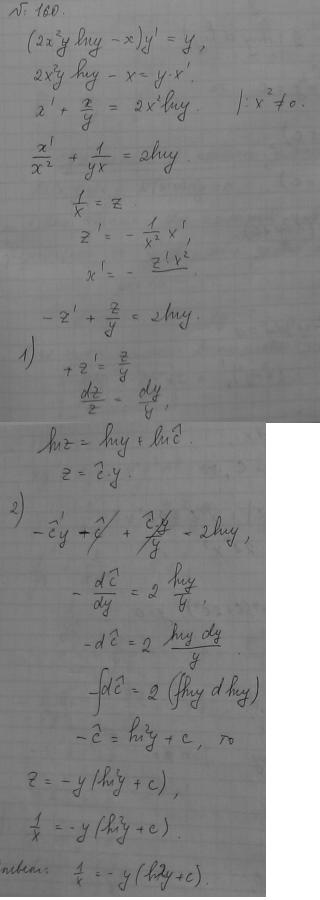 № 160.
(2x²y lny - x)y' = y,
2x²y lny - x = y·x'.
x' + x/y = 2x² lny. |: x² ≠ 0.
x'/x² + 1/yx = 2lny.
1/x = z.
z' = - 1/x² x',
x' = - z'x².
- z' + z/y = 2lny.
1) + z' = z/y
dz/z = dy/y,
lnz = lny + lnĉ.
z = ĉ·y.
2) - ĉ'y - ĉ + ĉy/y = 2lny,
- dĉ/dy = 2 lny/y,
- dĉ = 2 lny dy/y
-∫dĉ = 2 (∫lny d lny)
- ĉ = ln²y + c, то
z = - y (ln²y + c),
1/x = - y (ln²y + c).
Ответ: 1/x = - y (ln²y + c).